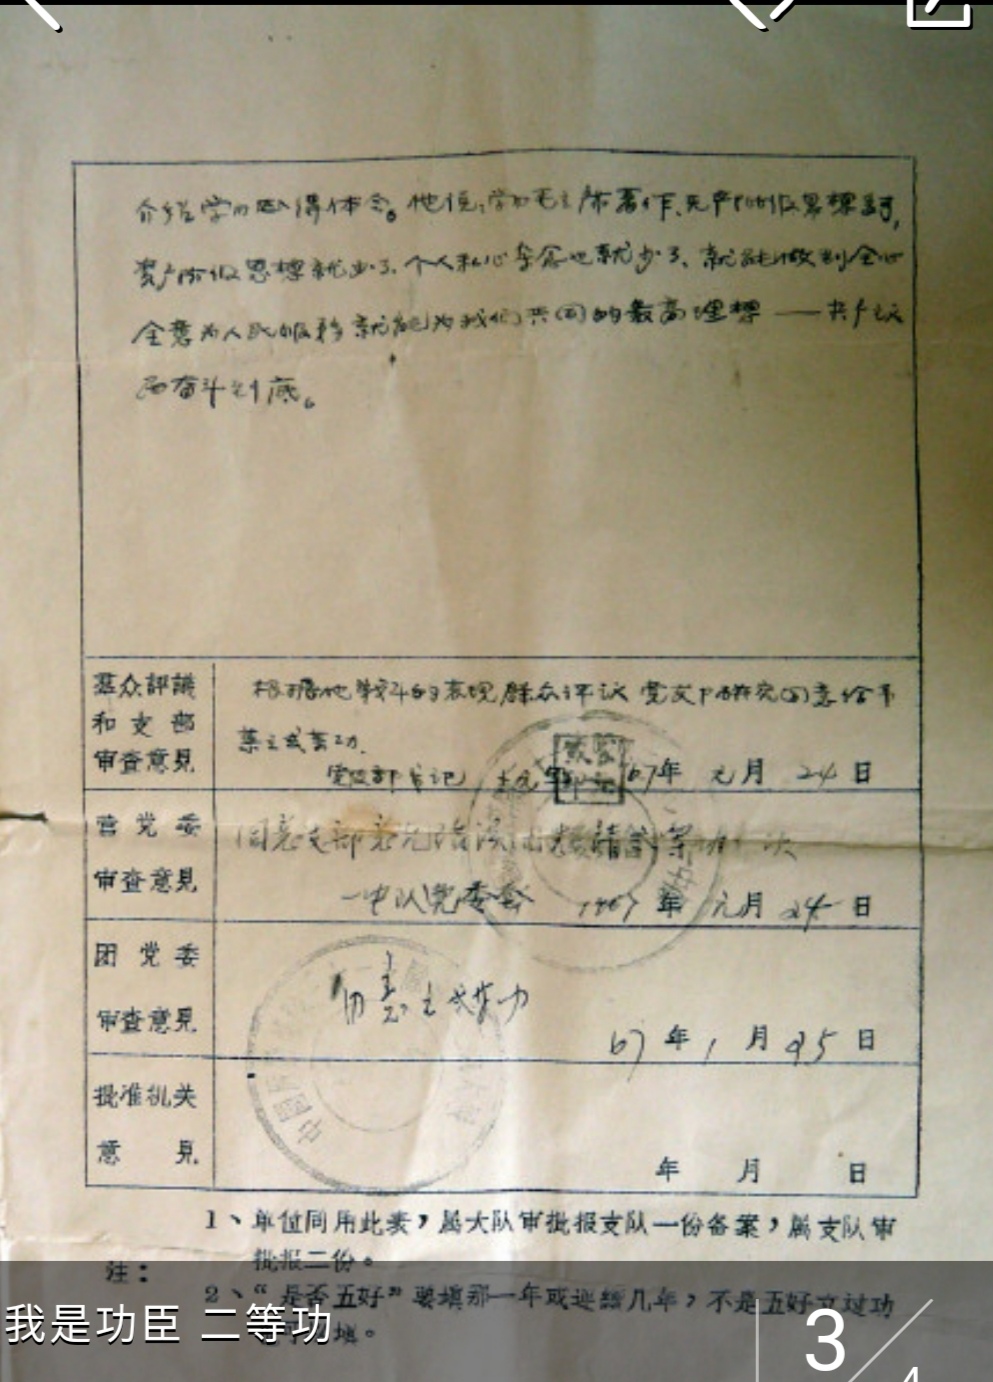 介绍学习心得体会。他说：学习毛主席著作，无产阶级思想多了，
资产阶级思想就少了，个人私心杂念也就少了，就能做到全心
全意为人民服务就能为我们共同的最高理想——共产主义
而奋斗到底。
羣众評議
和支部
审查意見
根据他的表现群众评议 党支部研究同意给予
某立功。
党支部书记
67年 元月 24日
营党委
审查意見
同意支部意见
一中队党委会 1967年 元月 24日
团党委
审查意見
同意立功
67年1月25日
批准机关
意見
年 月 日
注：
1、单位同用此表，属大队审批报支队一份备案，属支队审
批报二份。
2、“是否五好”要填那一年或連續几年，不是五好立过功
填。
我是功臣 二等功
3/4